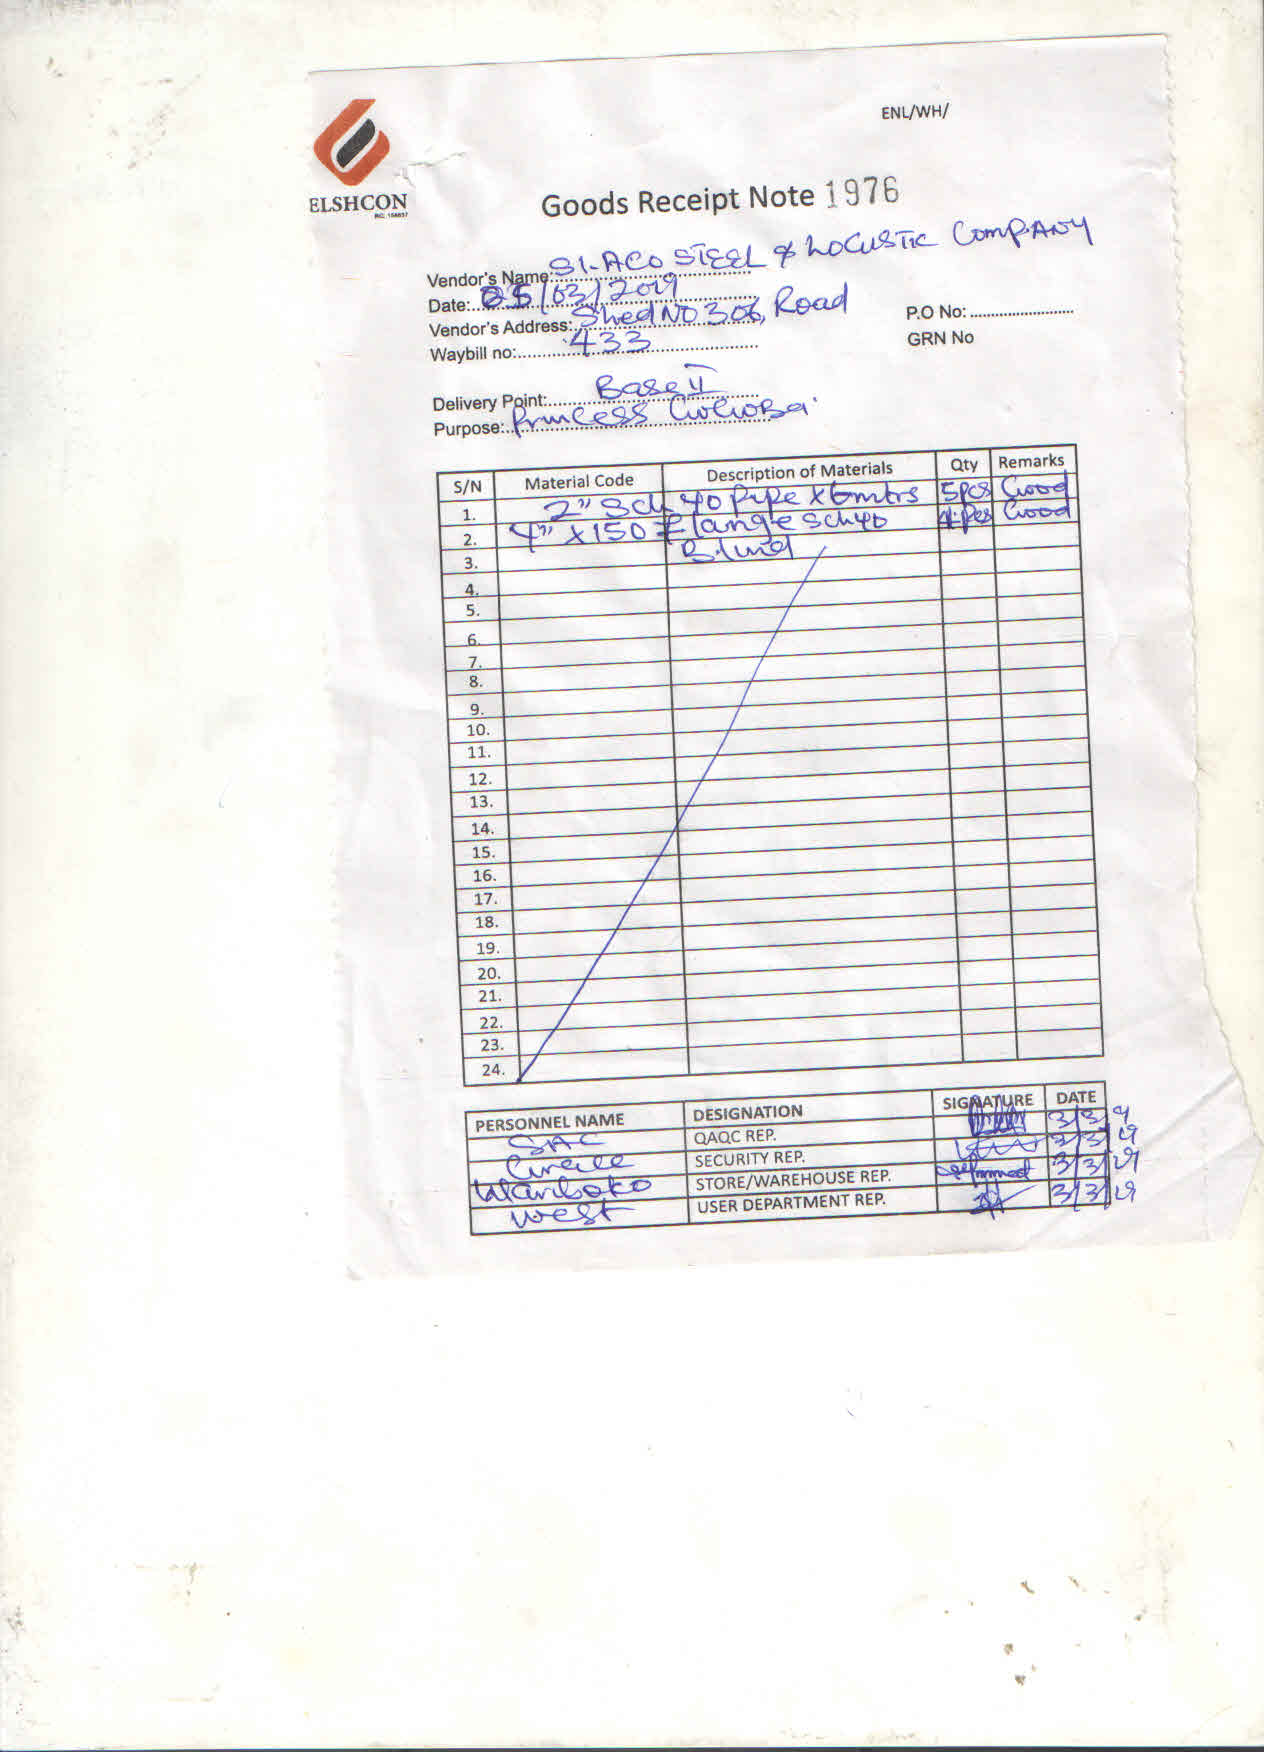 ENL/WH/
ELSHCON
RC: 156637
Goods Receipt Note 1976
Vendor's Name: SI-ACO STEEL & LOCUSTIC COMPANY
Date: 25/03/2019
Vendor's Address: Shed NO 306, Road
P.O No:
Waybill no: 433
GRN No
Delivery Point: Base II
Purpose: Princess
S/N Material Code Description of Materials Qty Remarks
1. 2" Sch 40 Pipe x 6mtrs 5pcs Good
2. 4" x 150 Flange sch40 4pcs Good
3. Blind
4.
5.
6.
7.
8.
9.
10.
11.
12.
13.
14.
15.
16.
17.
18.
19.
20.
21.
22.
23.
24.
PERSONNEL NAME DESIGNATION SIGNATURE DATE
SAC QAQC REP. 3/3/19
SECURITY REP. 3/3/19
Wariboko STORE/WAREHOUSE REP. 3/3/19
West USER DEPARTMENT REP. 3/3/19